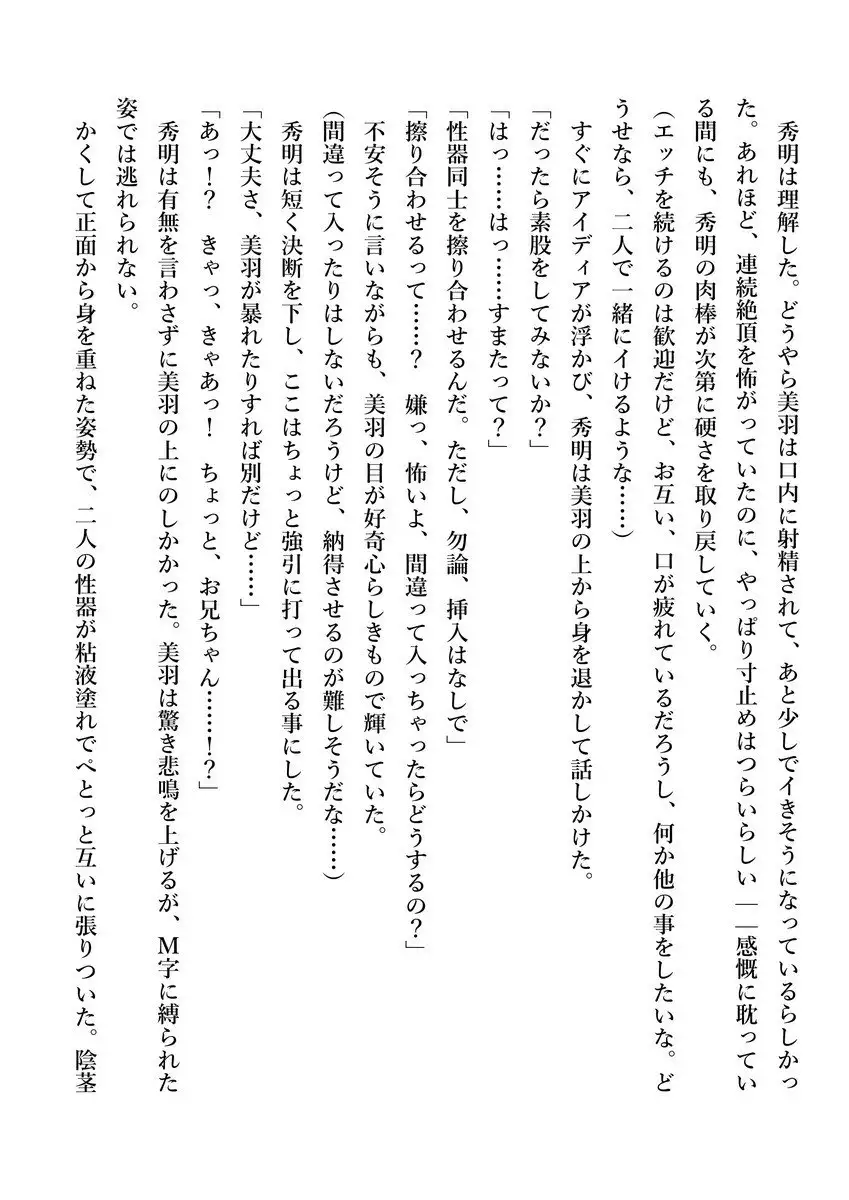 秀明は理解した。どうやら美羽は口内に射精されて、あと少しでイきそうになっているらしかっ
た。あれほど、連続絶頂を怖がっていたのに、やっぱり寸止めはつらいらしい――感慨に耽ってい
る間にも、秀明の肉棒が次第に硬さを取り戻していく。
(エッチを続けるのは歓迎だけど、お互い、口が疲れているだろうし、何か他の事をしたいな。ど
うせなら、二人で一緒にイけるような……)
すぐにアイディアが浮かび、秀明は美羽の上から身を退かして話しかけた。
「だったら素股をしてみないか?」
「はっ……はっ……すまたって?」
「性器同士を擦り合わせるんだ。ただし、勿論、挿入はなしで」
「擦り合わせるって……? 嫌っ、怖いよ、間違って入っちゃったらどうするの?」
不安そうに言いながらも、美羽の目が好奇心らしきもので輝いていた。
(間違って入ったりはしないだろうけど、納得させるのが難しそうだな……)
秀明は短く決断を下し、ここはちょっと強引に打って出る事にした。
「大丈夫さ、美羽が暴れたりすれば別だけど……」
「あっ!? きゃっ、きゃあっ! ちょっと、お兄ちゃん……!?」
秀明は有無を言わさずに美羽の上にのしかかった。美羽は驚き悲鳴を上げるが、M字に縛られた
姿では逃れられない。
かくして正面から身を重ねた姿勢で、二人の性器が粘液塗れでぺとっと互いに張りついた。陰茎